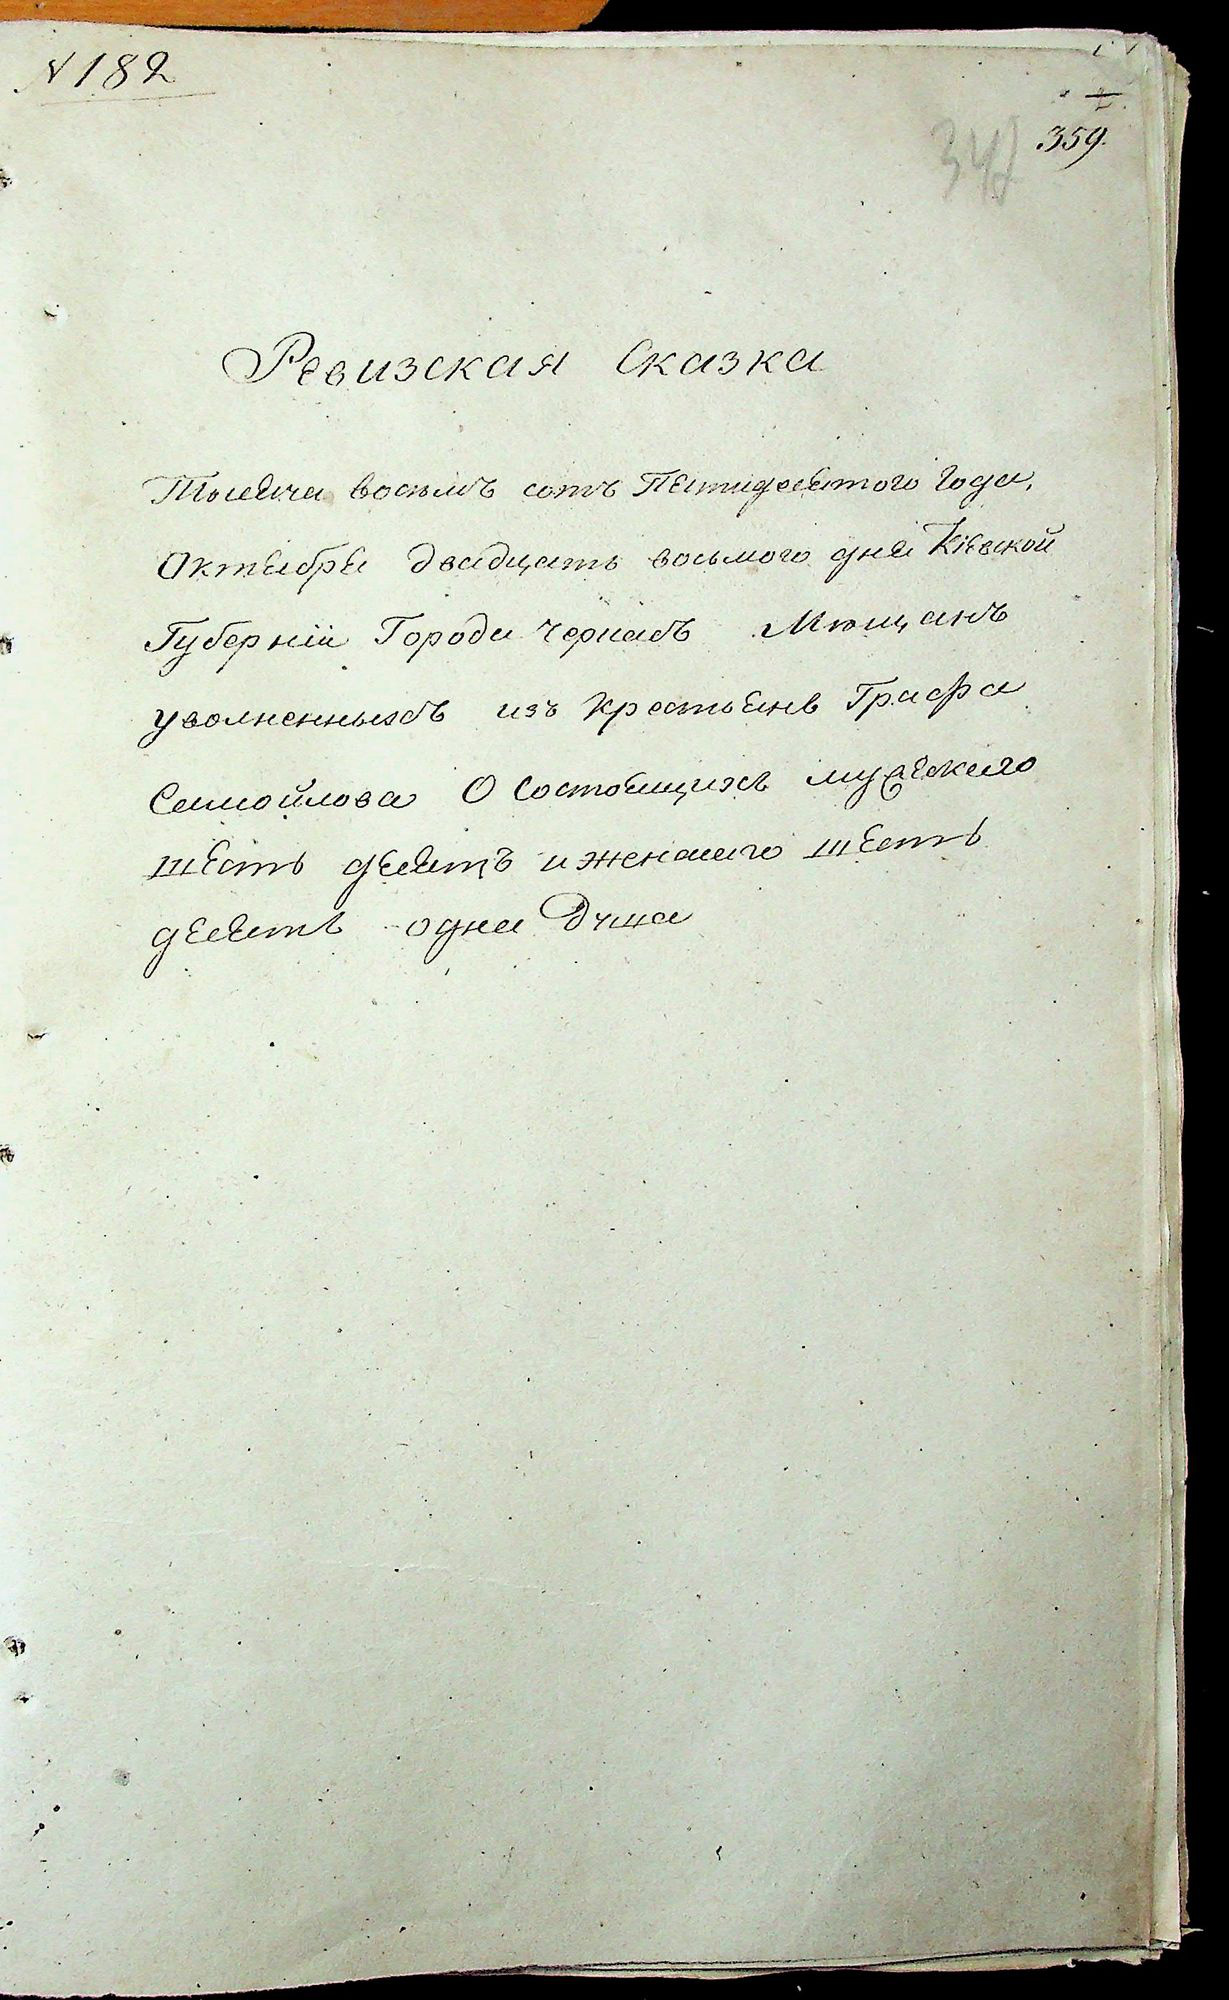 № 182
359.
347
Ревизская Сказка
Тысяча восемъ сотъ Пятидесятого Года,
Октября двадцать восьмого дня Кіевской
Губерніи Города Черкасъ Мѣщанъ
уволненныхъ изъ Крестьянъ Графа
Самойлова О Состоящихъ мужеского
шесть десятъ и женского шесть
десять одна Душа